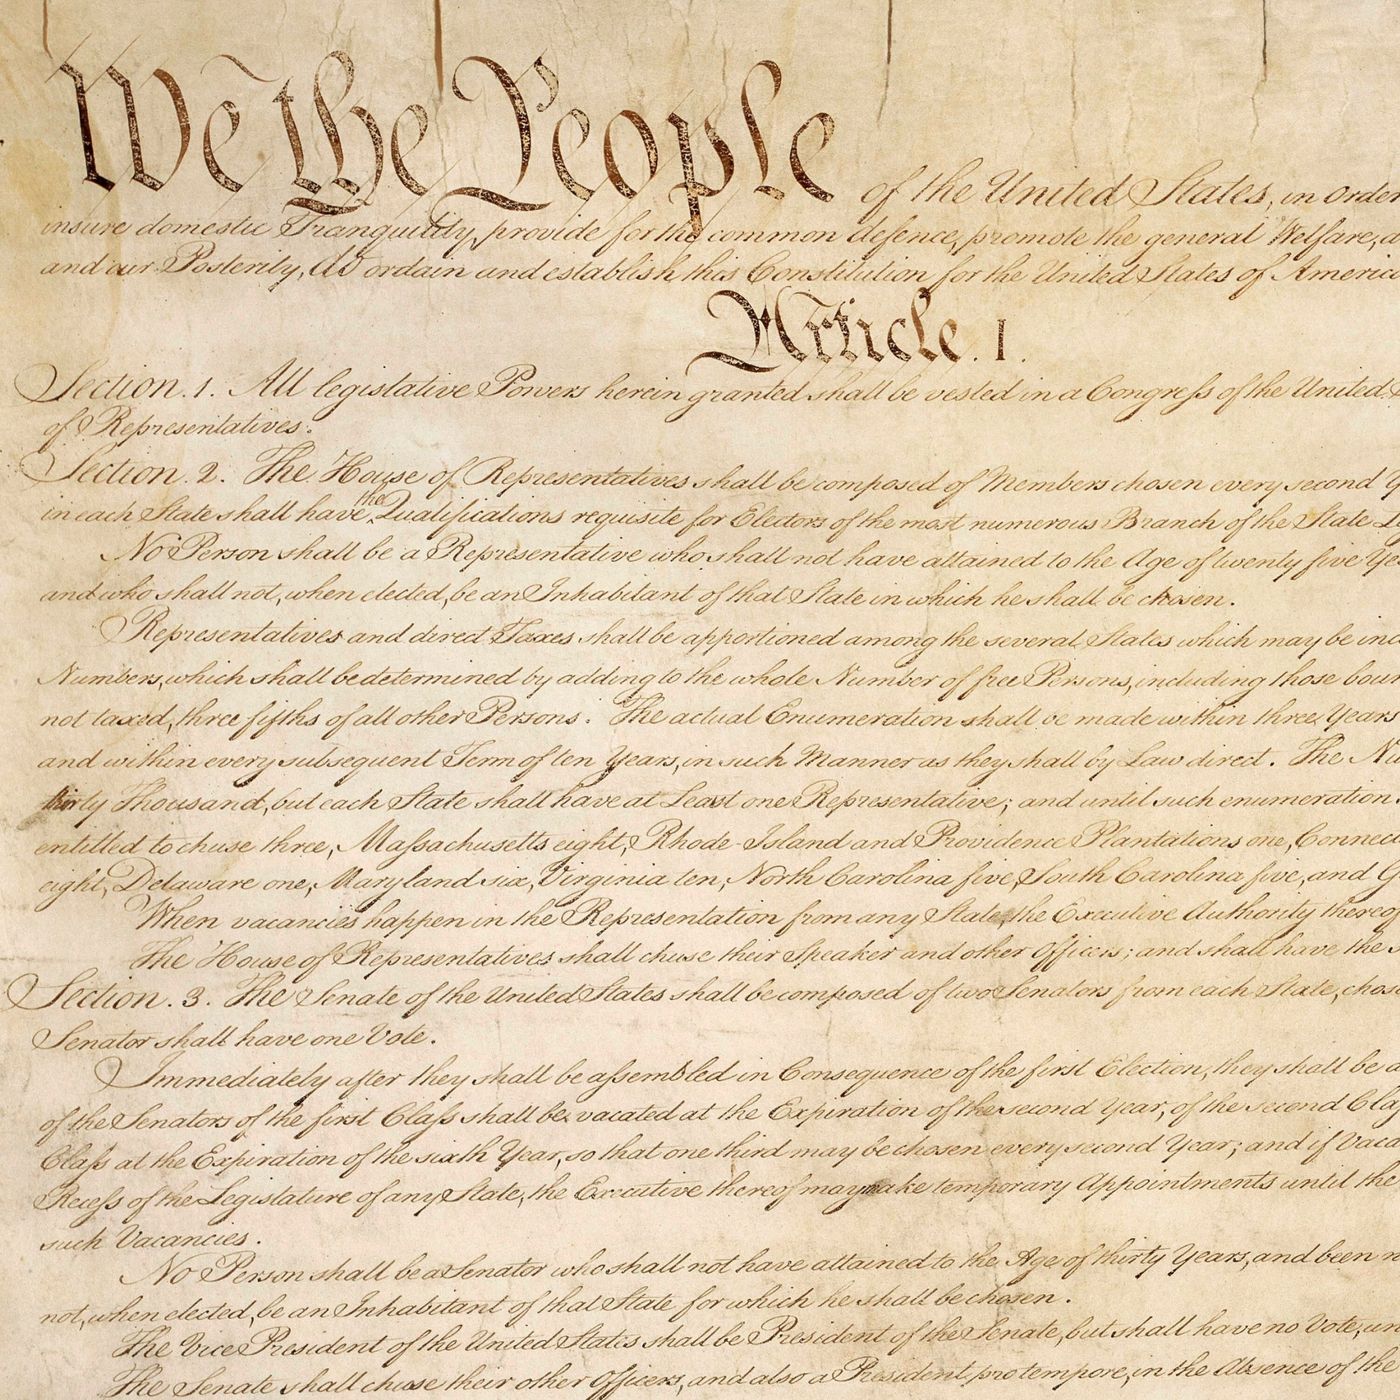 We the People of the United States, in Order
insure domestic Tranquility, provide for the common defence, promote the general Welfare, a
and our Posterity, do ordain and establish this Constitution for the United States of America
Article. I.
Section. 1. All legislative Powers herein granted shall be vested in a Congress of the United
of Representatives.
Section. 2. The House of Representatives shall be composed of Members chosen every second Y
in each State shall have the Qualifications requisite for Electors of the most numerous Branch of the State L
No Person shall be a Representative who shall not have attained to the Age of twenty five Ye
and who shall not, when elected, be an Inhabitant of that State in which he shall be chosen.
Representatives and direct Taxes shall be apportioned among the several States which may be inc
Numbers, which shall be determined by adding to the whole Number of free Persons, including those boun
not taxed, three fifths of all other Persons. The actual Enumeration shall be made within three Years
and within every subsequent Term of ten Years, in such Manner as they shall by Law direct. The Nu
thirty Thousand, but each State shall have at Least one Representative; and until such enumeration
entitled to chuse three, Massachusetts eight, Rhode-Island and Providence Plantations one, Connec
eight, Delaware one, Maryland six, Virginia ten, North Carolina five, South Carolina five, and G
When vacancies happen in the Representation from any State, the Executive Authority thereof
The House of Representatives shall chuse their Speaker and other Officers; and shall have the s
Section. 3. The Senate of the United States shall be composed of two Senators from each State, chose
Senator shall have one Vote.
Immediately after they shall be assembled in Consequence of the first Election, they shall be a
of the Senators of the first Class shall be vacated at the Expiration of the second Year, of the second Clas
Class at the Expiration of the sixth Year, so that one third may be chosen every second Year; and if Vaca
Recess of the Legislature of any State, the Executive thereof may make temporary Appointments until the
such Vacancies.
No Person shall be a Senator who shall not have attained to the Age of thirty Years, and been
not, when elected, be an Inhabitant of that State for which he shall be chosen.
The Vice President of the United States shall be President of the Senate, but shall have no Vote, un
The Senate shall chuse their other Officers, and also a President pro tempore, in the Absence of the